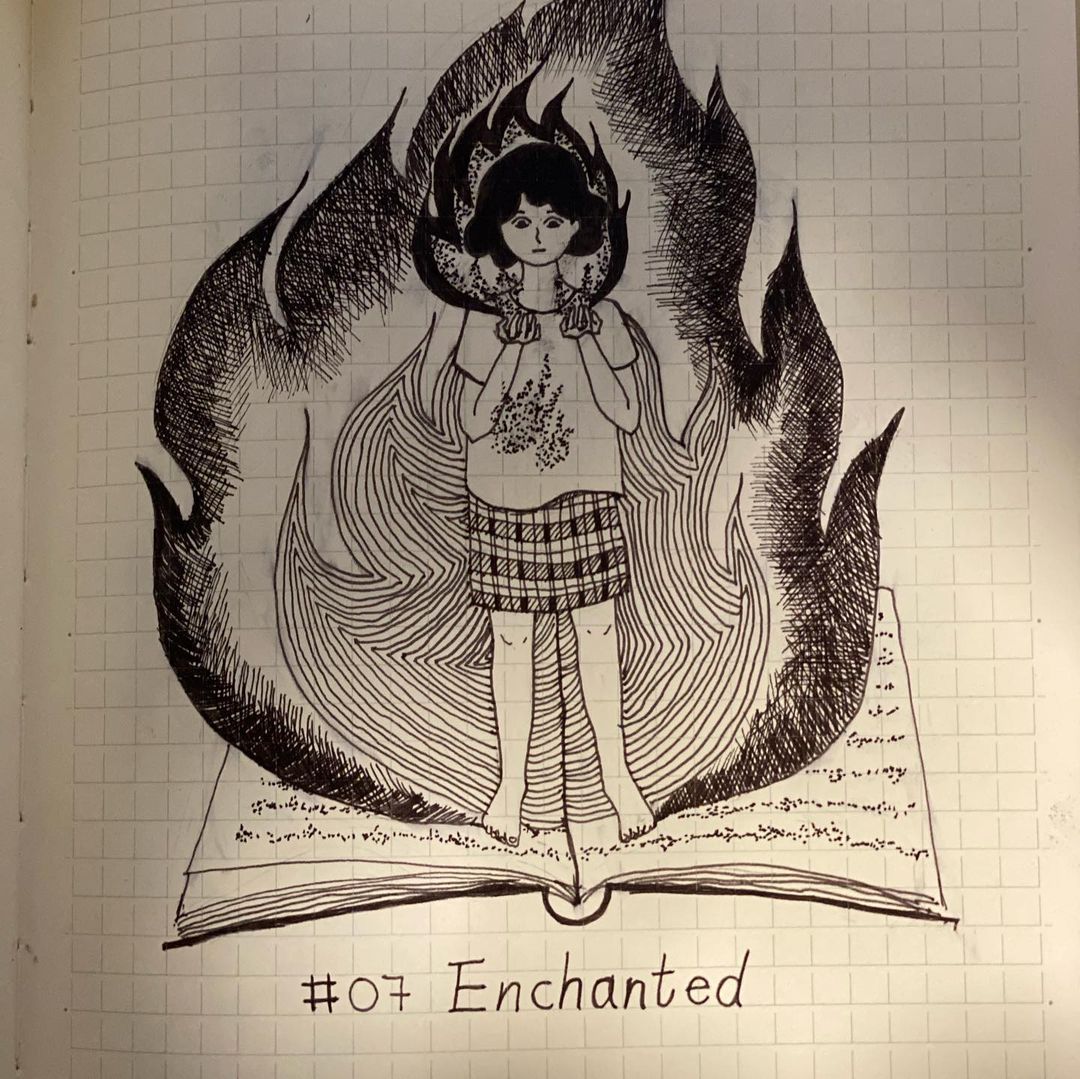 #07 Enchanted